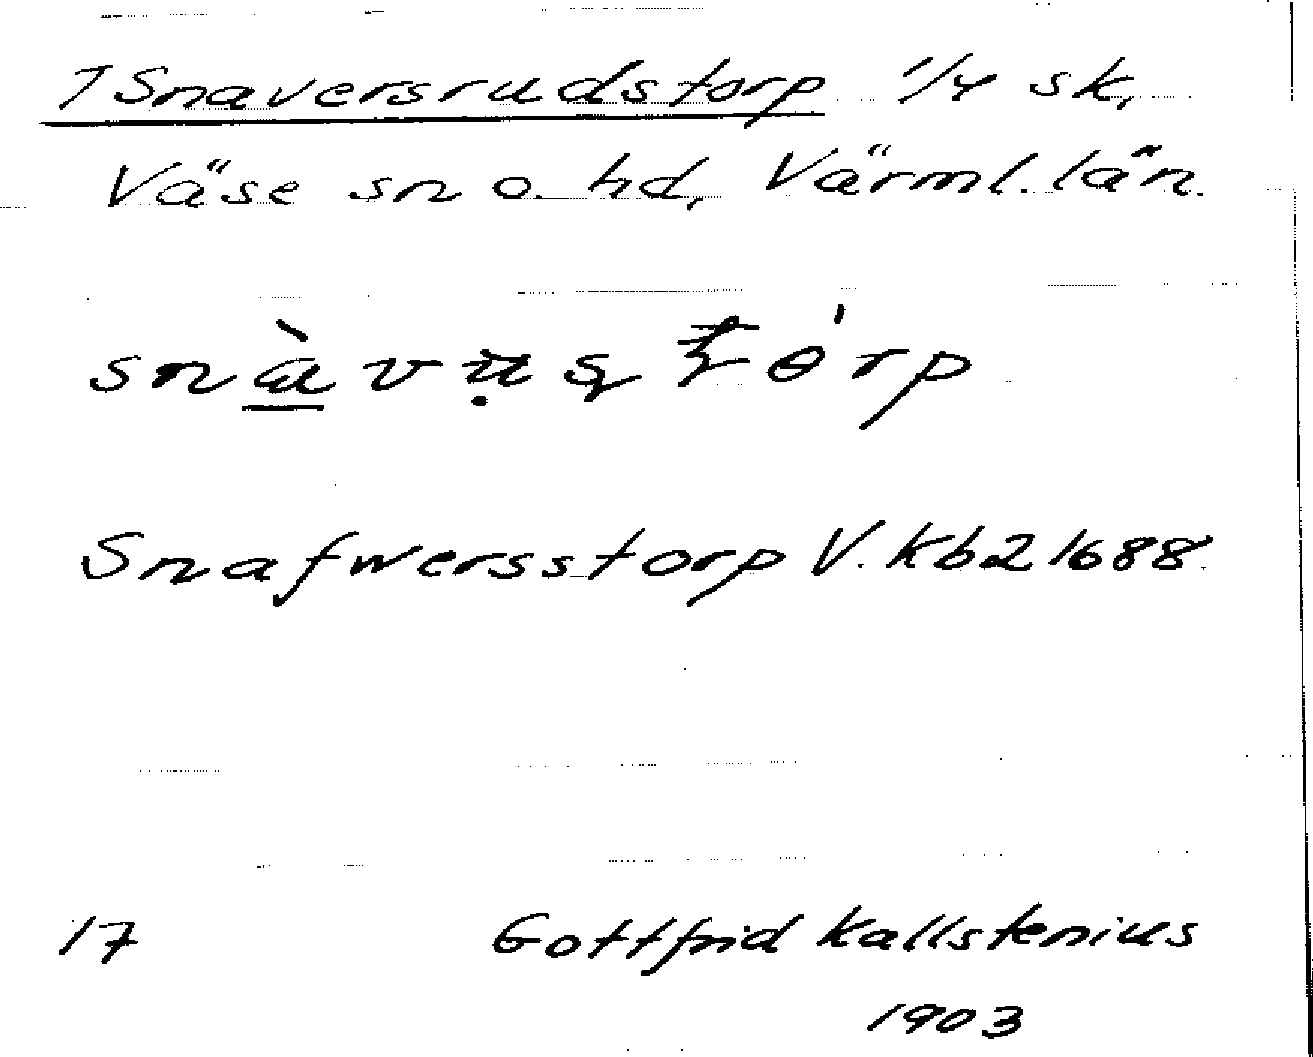 7 Snaversrudstorp 1/4 sk,
Väse sn o. hd, Värml. län.
Snafwersstorp V. Kb2 1688.
17 Gottfrid Kallstenius
1903